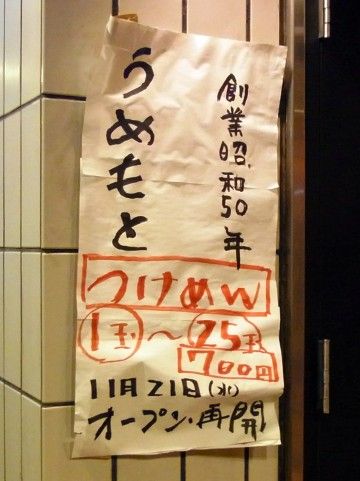 創業昭和50年
うめもと
つけめん
1玉〜2.5玉
700円
11月21日(水)
オープン・再開